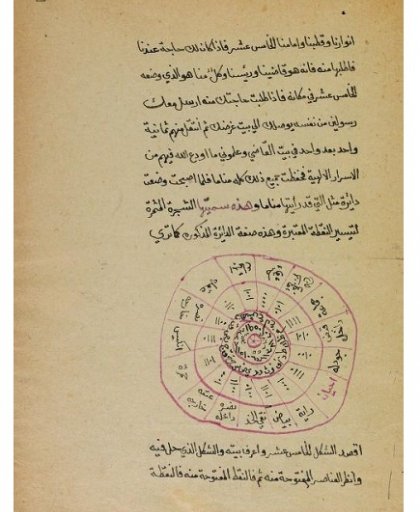 انوارنا وقطبنا وامامنا الخامس عشر فاذا كان لك حاجة عندنا
فاطلبها منه فانه هو قاضينا ورئيسنا وكل منا هو الذي وضعه
الخامس عشر في مكانه فاذا طلبت حاجتك منه ارسل معك
رسولين من نفسه يوصلك الى بيت غرضك ثم انتقل منهم ثمانية
واحد بعد واحد في بيت القاضي وعلموني ما اودع الله فيهم من
الاسرار الالهية فحفظت جميع ذلك كله مناما فلما اصبحت وضعت
دائرة مثل التي قد رايتها مناما وهذه سميتها الشجرة المثمرة
لتيسير النقطة المعتبرة وهذه صفة الدائرة المذكورة كما ترى
عقله
نصرة خارجه
انكيس
حمرة
عتبة خارجه
نصرة داخله
بياض
نقي الخد
جودله
احيان
اقصد الشكل الخامس عشر واعرف بيته والشكل الذي حل فيه
وانظر العناصر المفتوحة منه ثم فالنقط المفتوحة منه فالنقطة